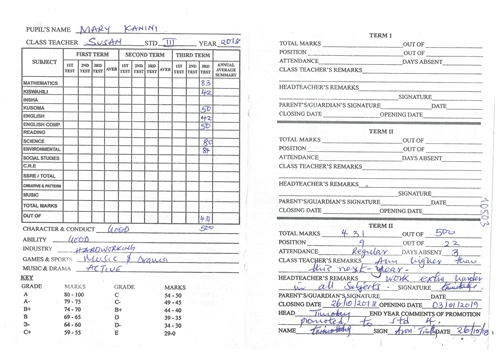 PUPIL'S NAME MARY KANINI
CLASS TEACHER SUSAN STD III YEAR 2018
SUBJECT FIRST TERM SECOND TERM THIRD TERM ANNUAL AVERAGE SUMMARY
1ST TEST 2ND TEST 3RD TEST AVER 1ST TEST 2ND TEST 3RD TEST AVER 1ST TEST 2ND TEST 3RD TEST
MATHEMATICS 83
KISWAHILI 42
INSHA
KUSOMA 50
ENGLISH 42
ENGLISH COMP. 50
READING
SCIENCE 80
ENVIRONMENTAL 84
SOCIAL STUDIES
C.R.E
SSRE / TOTAL
CREATIVE & PATTERN
MUSIC
TOTAL MARKS
OUT OF 431
500
CHARACTER & CONDUCT GOOD
ABILITY GOOD
INDUSTRY HARDWORKING
GAMES & SPORTS MUSIC & Drama
MUSIC & DRAMA ACTIVE
KEY
GRADE MARKS GRADE MARKS
A 80 - 100 C 54 - 50
A- 79 - 75 C 49 - 45
B+ 74 - 70 D+ 44 - 40
B 69 - 65 D 39 - 35
B- 64 - 60 D- 34 - 30
C+ 59 - 55 E 29-0
TERM I
TOTAL MARKS OUT OF
POSITION OUT OF
ATTENDANCE DAYS ABSENT
CLASS TEACHER'S REMARKS
HEADTEACHER'S REMARKS
SIGNATURE
PARENT'S/GUARDIAN'S SIGNATURE DATE
CLOSING DATE OPENING DATE
TERM II
TOTAL MARKS OUT OF
POSITION OUT OF
ATTENDANCE DAYS ABSENT
CLASS TEACHER'S REMARKS
HEADTEACHER'S REMARKS
SIGNATURE
PARENT'S/GUARDIAN'S SIGNATURE DATE
CLOSING DATE OPENING DATE
10503
TERM II
TOTAL MARKS 431 OUT OF 500
POSITION 9 OUT OF 22
ATTENDANCE Regular DAYS ABSENT 3
CLASS TEACHER'S REMARKS Aim higher than
this next year.
HEADTEACHER'S REMARKS work extra harder
in all subjects. SIGNATURE
PARENT'S/GUARDIAN'S SIGNATURE DATE
CLOSING DATE 26/10/2018 OPENING DATE 03/01/2019
HEAD Timothy END YEAR COMMENTS OF PROMOTION
promoted to std 4.
NAME SIGN DATE 26/10/18